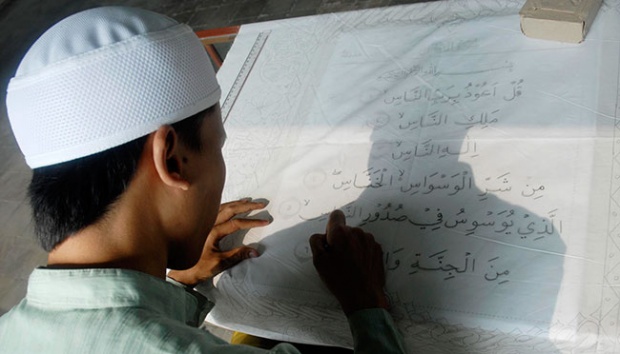 قُلْ اَعُوْذُ بِرَبِّ النَّاسِۙ
مَلِكِ النَّاسِۙ
اِلٰهِ النَّاسِۙ
مِنْ شَرِّ الْوَسْوَاسِ ەۙ الْخَنَّاسِۖ
الَّذِيْ يُوَسْوِسُ فِيْ صُدُوْرِ
مِنَ الْجِنَّةِ